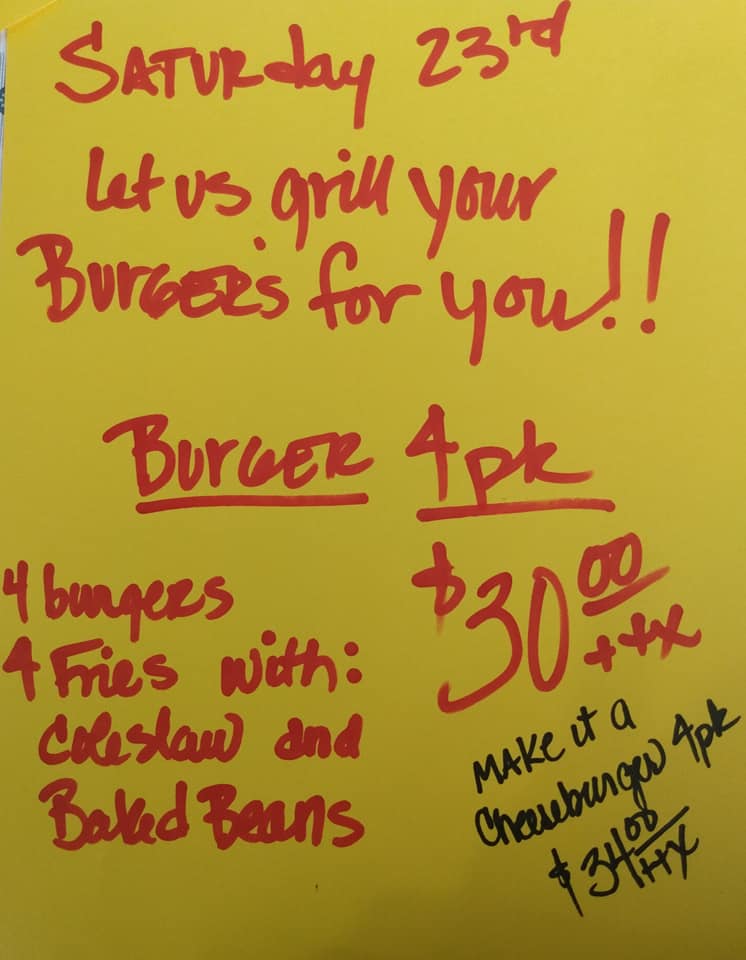 SATURday 23rd
Let us grill your
BURGERS for you!!
BURGER 4pk
4 burgers
4 Fries with:
Coleslaw and
Baked Beans
$30.00
+tx
MAKE it a
Cheeseburger 4pk
$34.00
+tx